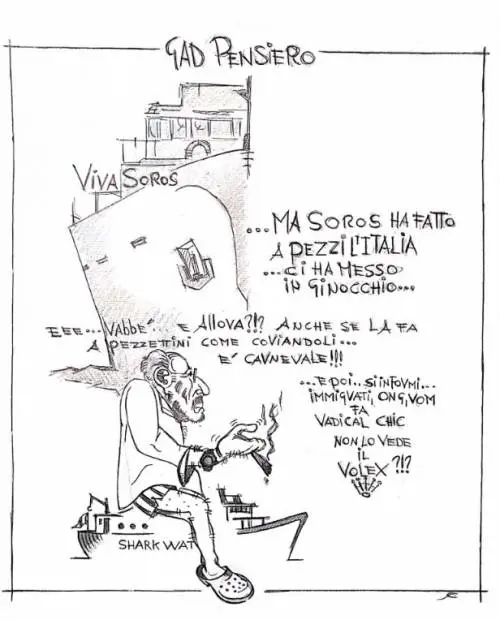 GAD PENSIERO
VIVA SOROS
...MA SOROS HA FATTO
A PEZZI L'ITALIA
...CI HA MESSO
IN GINOCCHIO...
EEE... VABBE'... E ALLOVA?!? ANCHE SE LA FA
A PEZZETTINI COME COVIANDOLI...
E' CAVNEVALE!!!
...E POI.. SI INFOVMI...
IMMIGVATI, ONG, VOM
FA
VADICAL CHIC
NON LO VEDE
IL
VOLEX?!?
SHARK WAT